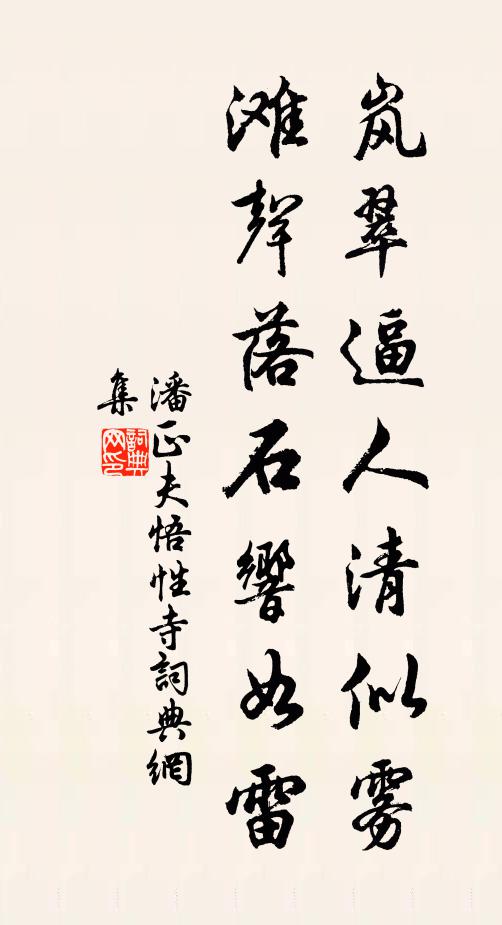 岚翠逼人清似雾
滩聲落石響如雷
潘正夫悟性寺詞典網
集
詞典网印